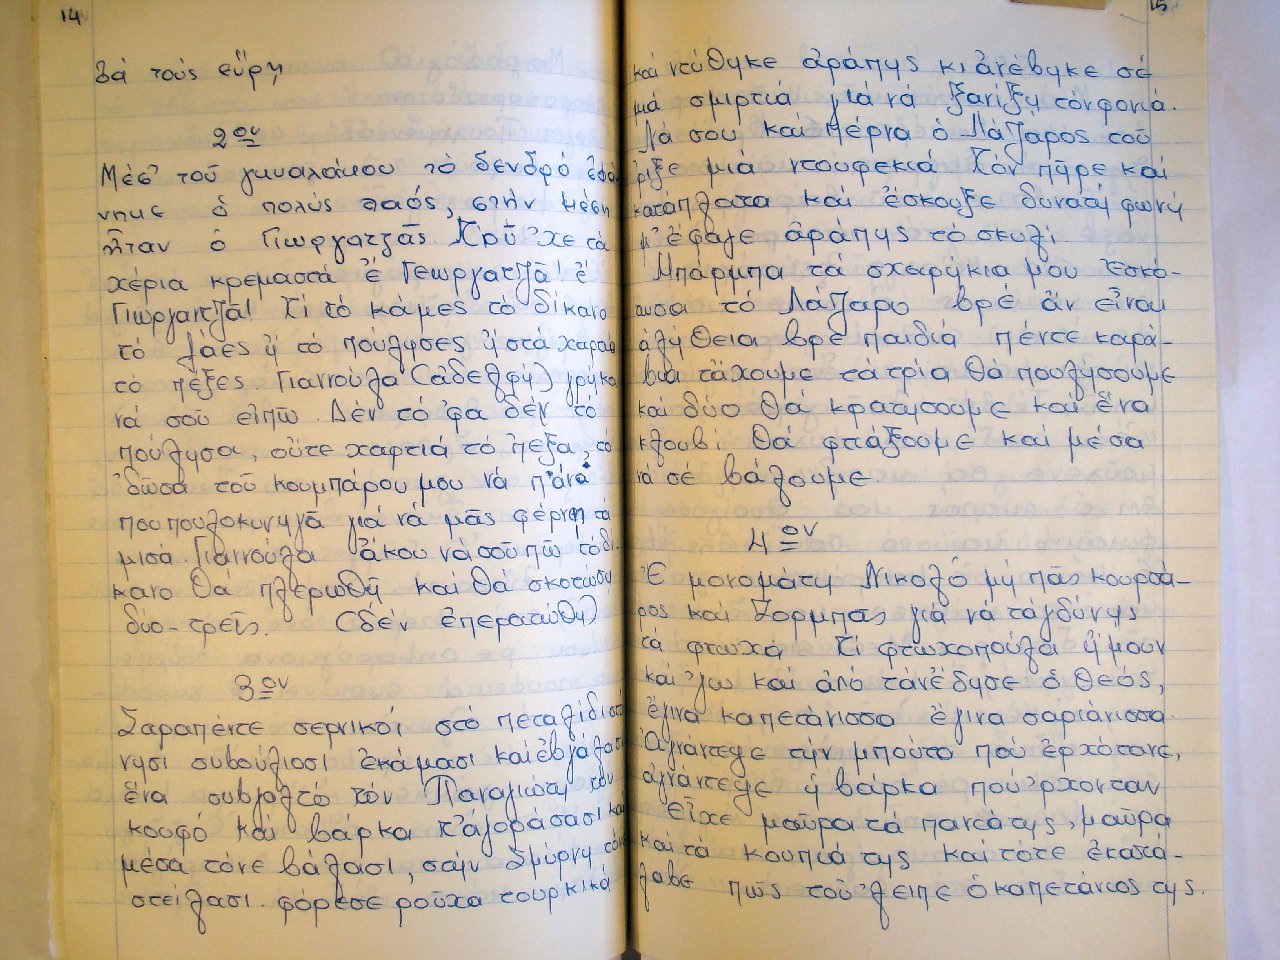 14
θά τούς εὕρη
2ον
Μέσ' τοῦ γυιαλάκου τό δενδρό ἐφά-
νηκε ὁ πολύς λαός, στήν μέση
ἦταν ὁ Γιωργατζᾶς Ποῦ 'χε τά
χέρια κρεμαστά Ἐ Γεωργατζᾶ! ἐ
Γιωργατζᾶ! Τί τό κάμες τό δίκανο
τό φάες ἤ τό πούλησες ἤ στά χαρτιά
τό πέξες Γιαννούλα (ἀδελφή) γρήκα
νά σοῦ εἰπῶ. Δέν τό 'φα δέν τό
πούλησα, οὔτε χαρτιά τό 'πεξα, τό
'δῶσα τοῦ κουμπάρου μου νά π'άνα
πουπουλοκυνηγᾶ γιά νά μᾶς φέρνη τά
μισά. Γιαννούλα ἄκου νά σοῦ πῶ τό δί-
κανο θά πλερωθῆ καί θά σκοτώσω
δύο-τρεῖς. (δέν ἐπερατώθη)
3ον
Σαραπέντε σερνικοί στό πεταλίδι στό
νησι συβούλιοσι ἐκάμασι καί ἐβγάλασι
ἕνα συβγαλτό τόν Παναγιώτη τόν
κουφό καί βάρκα τ' ἀγοράσασι καί
μέσα τόνε βάλασι, στήν Σμύρνη τόνε
στείλασι. φόρεσε ροῦχα τουρκικά
15
καί ντύθηκε ἀράπης κι ἀνέβηκε σέ
μιά σμιρτιά γιά νά ξανίξη τόν φονιά.
Νά σου καί πέρνα ὁ Λάζαρος τοῦ
ρίξε μιά ντουφεκιά Τόν πῆρε καί
κατάπλατα καί ἐσκουξε δυνατή φωνή
μ' ἐφαγε ἀράπης τό σκυλί.
Μπάρμπα τά σχαρήκια μου Ἐσκό-
τωσα τό Λαζαρο βρέ ἄν εἶναι
ἀλήθεια βρέ παιδιά πέντε καρά-
βια τἄχουμε τά τρία θά πουλήσουμε
καί δύο θά κρατήσουμε καί ἕνα
κλουβί θά φτιάξουμε καί μέσα
νά σέ βάλουμε
4ον
Ἐ μονομάτη Νικολό μή πᾶς κουρσά-
ρος καί Ζορμπας γιά νά τά γδύνης
τά φτωχά. Τί φτωχοπούλα ἤμουν
καί 'γω καί ἀπό τἀνέδησε ὁ Θεός,
ἔγινα καπετάνισσα ἔγινα σαριάνισσα.
Ἀγνάντεψε τήν μπούτα πού ἐρχότανε,
ἀγνάντεψε ἡ βάρκα πού 'ρχονταν
Εἶχε μαῦρα τά πανιά της, μαῦρα
καί τά κουπιά της καί τότε ἐκατά-
λαβε πῶς τοῦ 'λειπε ὁ καπετάνιος της.